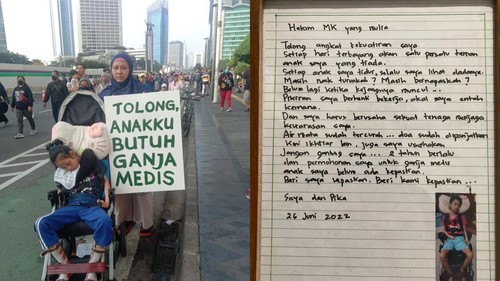 TOLONG,
ANAKKU
BUTUH
GANJA
MEDIS
Hakim MK yang mulia
Tolong angkat kekuatiran saya
Setiap hari terbayang akan satu persatu teman
anak saya yang tiada.
Setiap anak saya tidur, selalu saya lihat dadanya.
Masih naik turunkah? Masih bernapaskah?
Belum lagi ketika kejangnya muncul...
Pikiran saya berhenti bekerja, akal saya entah
kemana.
Dan saya harus berusaha sekuat tenaga menjaga
kewarasan saya.
Air mata sudah terurai... doa sudah dipanjatkan
Kini ikhtiar lain, juga saya usahakan
Jangan gantung saya... 2 tahun berlalu
dan permohonan saya untuk ganja medis
anak saya belum ada kepastian.
Beri saya kepastian. Beri kami kepastian...
Saya dan Pika
26 Juni 2022